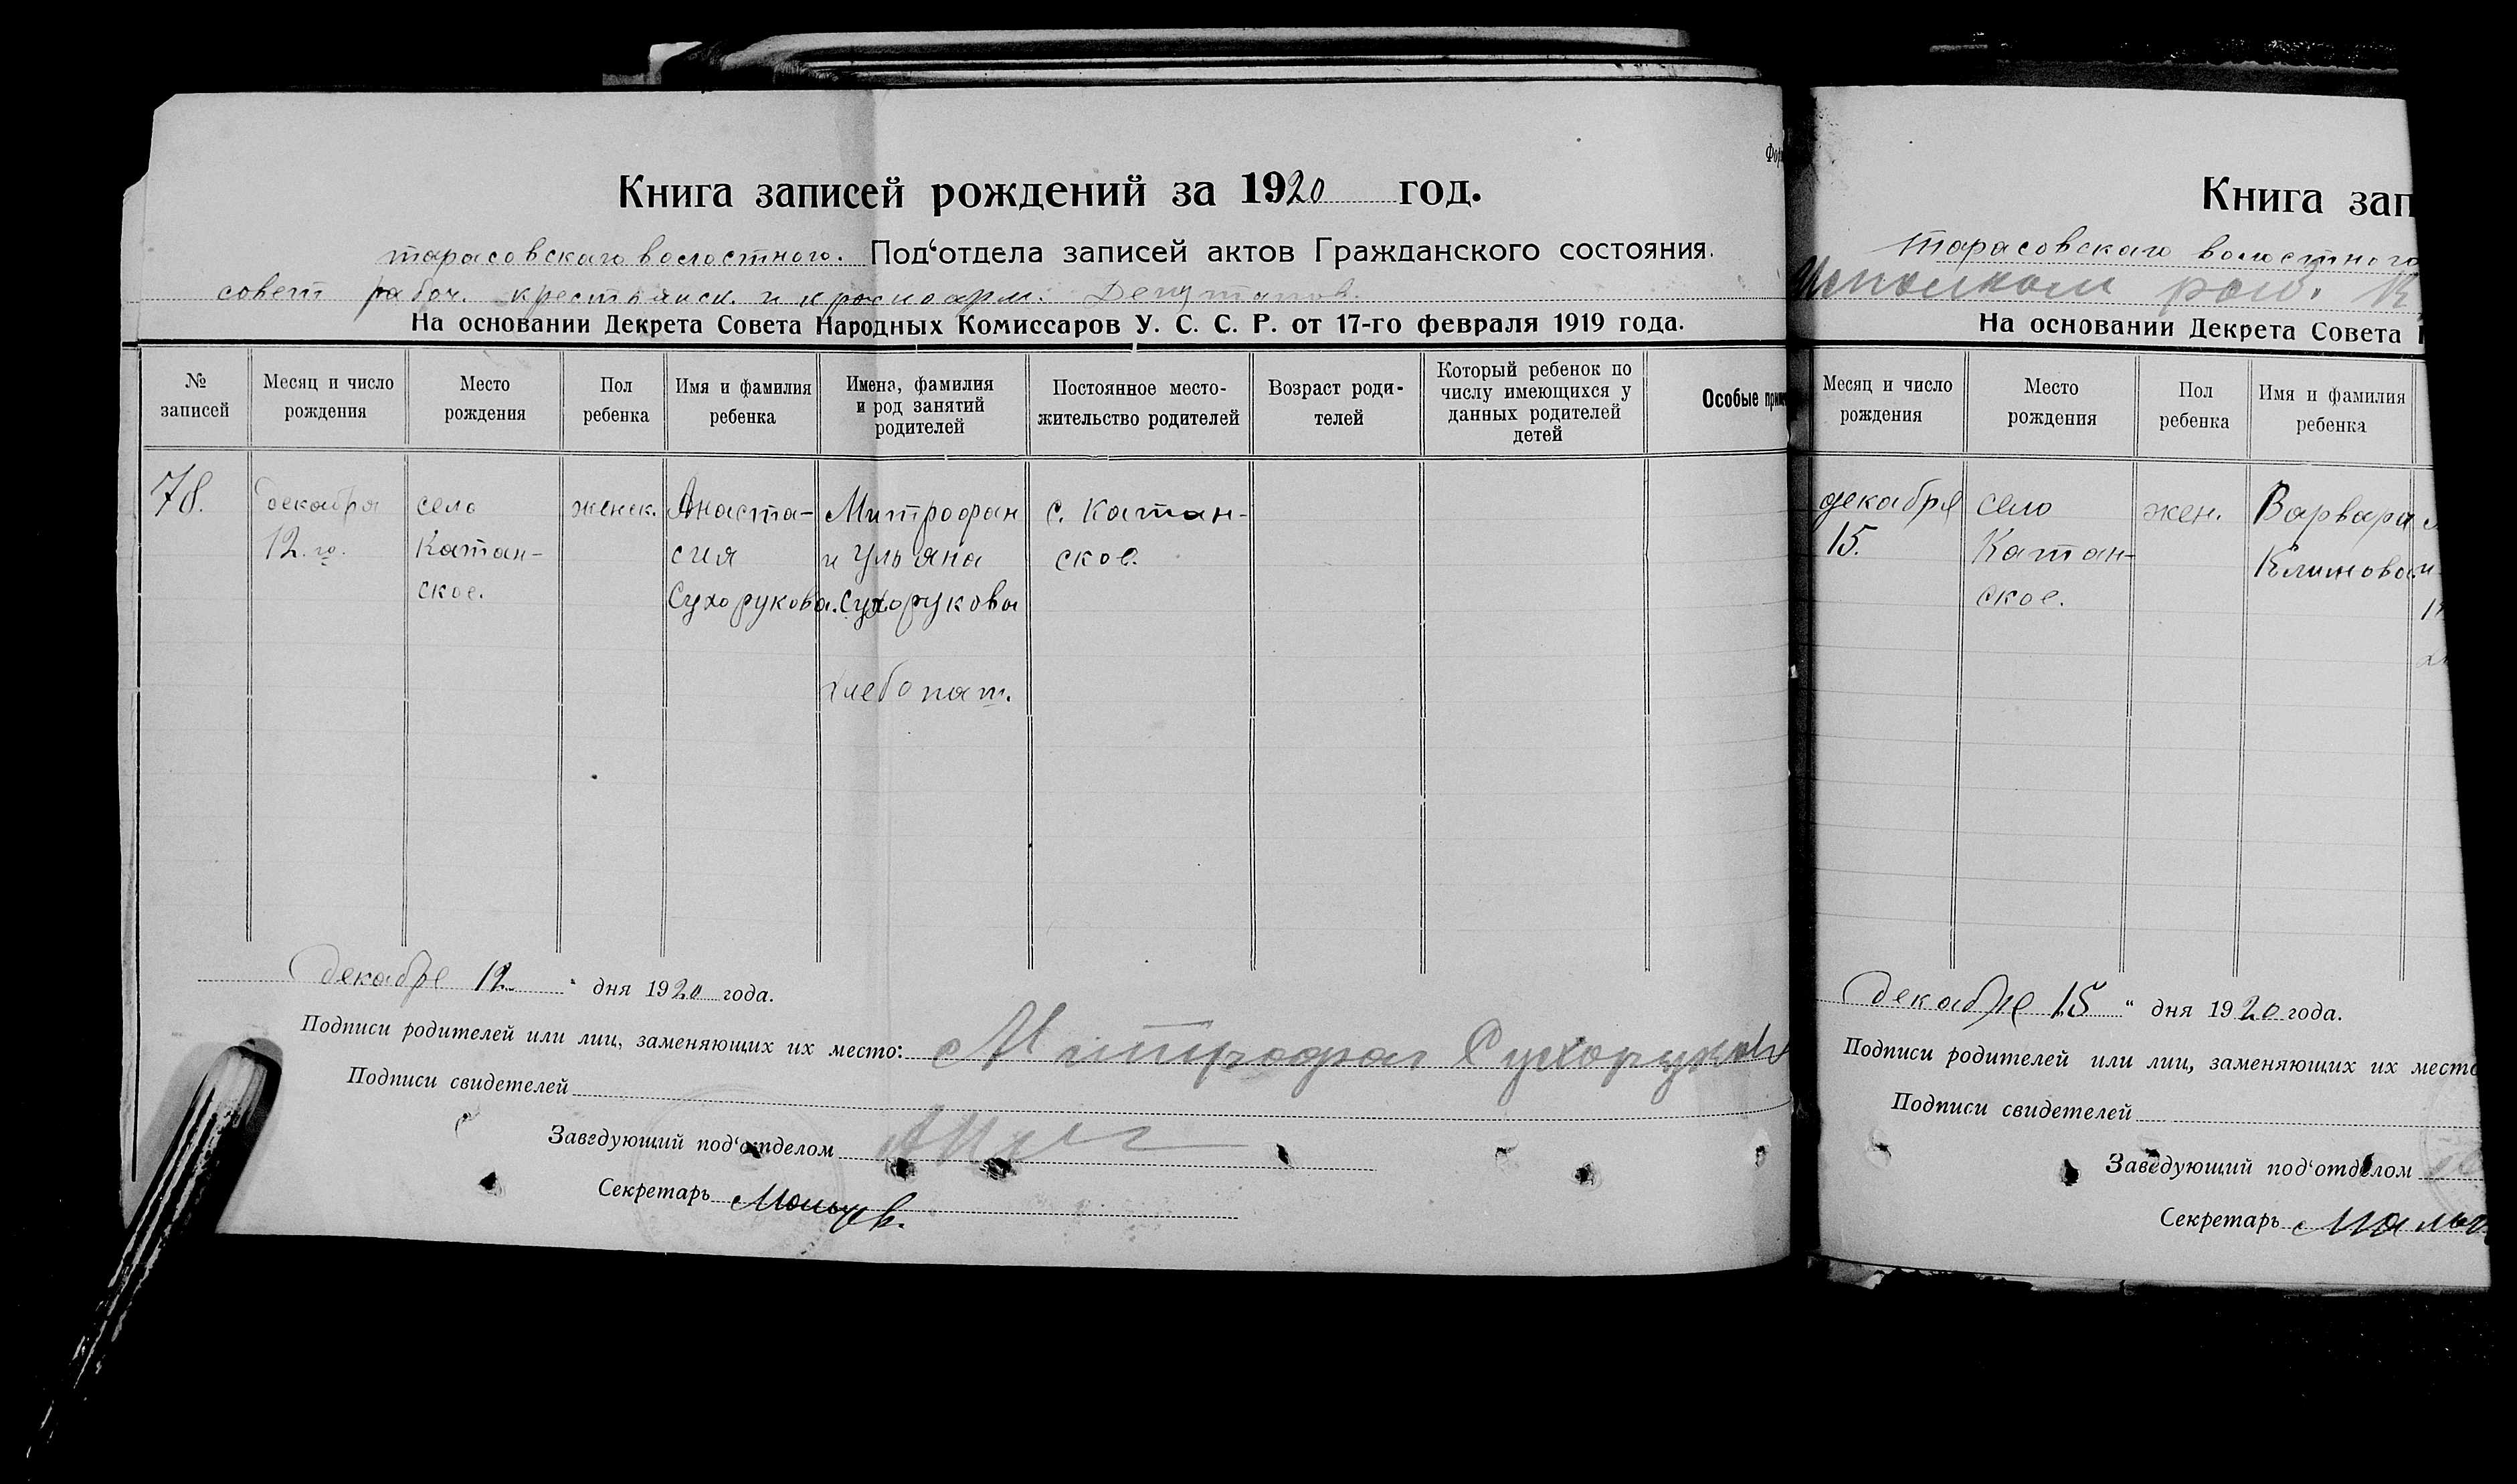 Книга записей рождений за 1920 год.
тарасовскаго волостного. Под‘отдела записей актов Гражданского состояния.
совет рабоч. крестьянск. и красноарм. Депутатов.
На основании Декрета Совета Народных Комиссаров У. С. С. Р. от 17-го февраля 1919 года.
№ записей
Месяц и число рождения
Место рождения
Пол ребенка
Имя и фамилия ребенка
Имена, фамилия и род занятий родителей
Постоянное место-жительство родителей
Возраст роди-телей
Который ребенок по числу имеющихся у данных родителей детей
Особые
78.
декабря
12.го.
село
Катан-
ское.
женск.
Анаста-
сия
Сухорукова.
Митрофан
и Ульяна
Сухоруковы
хлебопаш.
с. Катан-
ское.
декабре 12 " дня 1920 года.
Подписи родителей или лиц, заменяющих их место: Митрофан Сухоруков
Подписи свидетелей
Заведующий под‘отделом
Секретарь
Книга зап
тарасовскаго волостного
Исполком
На основании Декрета Совета
Месяц и число рождения
Место рождения
Пол ребенка
Имя и фамилия ребенка
декабря
15.
село
Катан-
ское.
жен.
Варвара
Климова
декабре 15 " дня 1920 года.
Подписи родителей или лиц, заменяющих их место
Подписи свидетелей
Заведующий под‘отделом
Секретарь